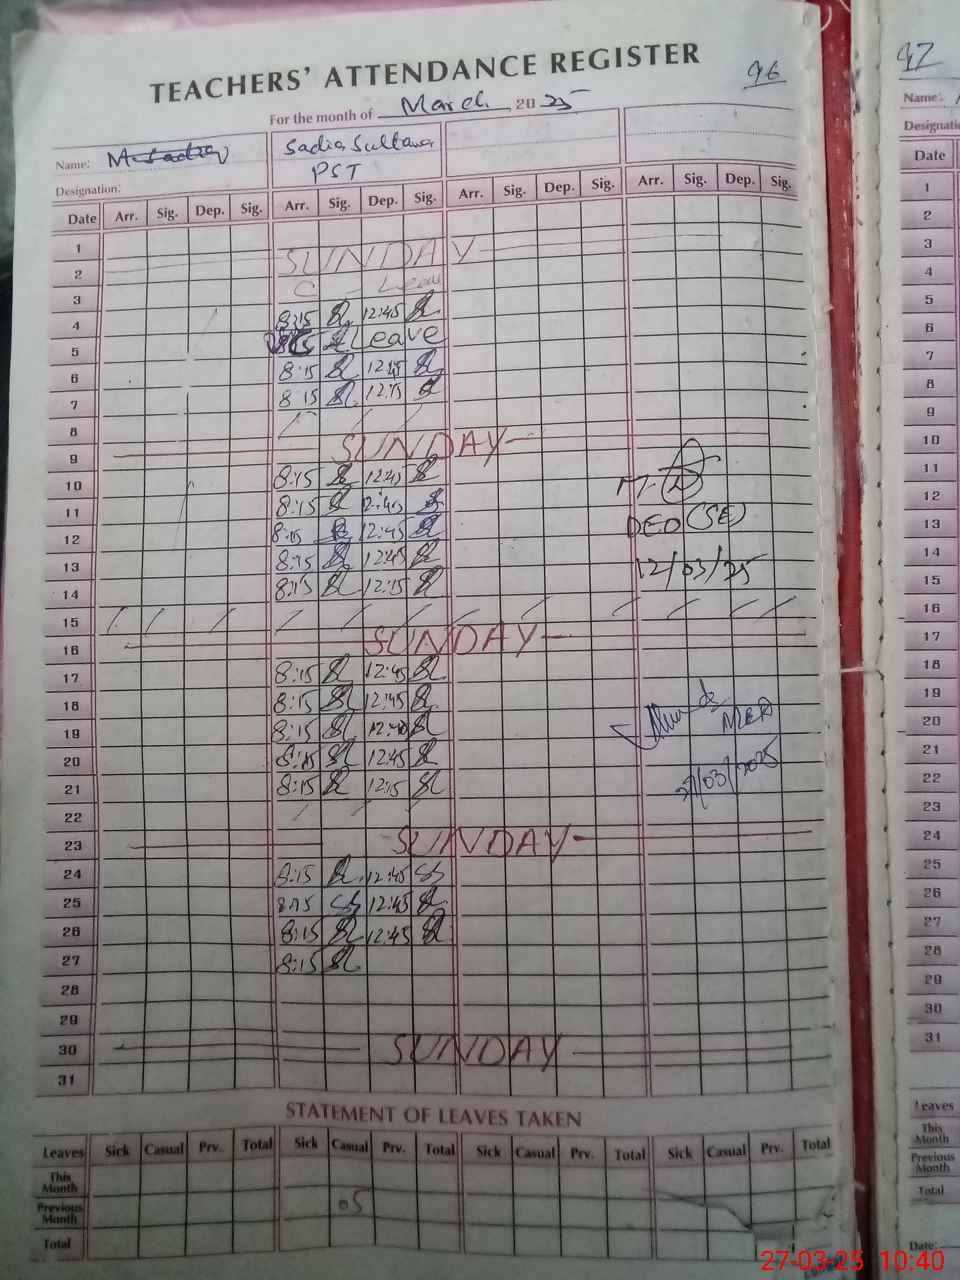 TEACHERS' ATTENDANCE REGISTER
96
For the month of March 2025
Name: M. Sadia
Sadia Sultana
Designation:
PST
Date Arr. Sig. Dep. Sig. Arr. Sig. Dep. Sig. Arr. Sig. Dep. Sig. Arr. Sig. Dep. Sig.
1
2 SUNDAY
3 C - Leave
4 8:15 12:45
5 Leave
6 8:15 12:45
7 8:15 12:15
8
9 SUNDAY
10 8:15 12:45
11 8:15 12:45
12 8:15 12:45
13 8:15 12:45
14 8:15 12:15
15
16 SUNDAY
17 8:15 12:45
18 8:15 12:45
19 8:15 12:45
20 8:15 12:45
21 8:15 12:15
22
23 SUNDAY
24 8:15 12:45
25 8:15 12:45
26 8:15 12:45
27 8:15
28
29
30 SUNDAY
31
DEO (SE)
12/03/25
/03/2025
STATEMENT OF LEAVES TAKEN
Leaves Sick Casual Prv. Total Sick Casual Prv. Total Sick Casual Prv. Total Sick Casual Prv. Total
This Month
Previous Month 05
Total
97
Name:
Date
1
2
3
4
5
6
7
8
9
10
11
12
13
14
15
16
17
18
19
20
21
22
23
24
25
26
27
28
29
30
31
Leaves
This Month
Previous Month
Total
Date:
27-03-25 10:40